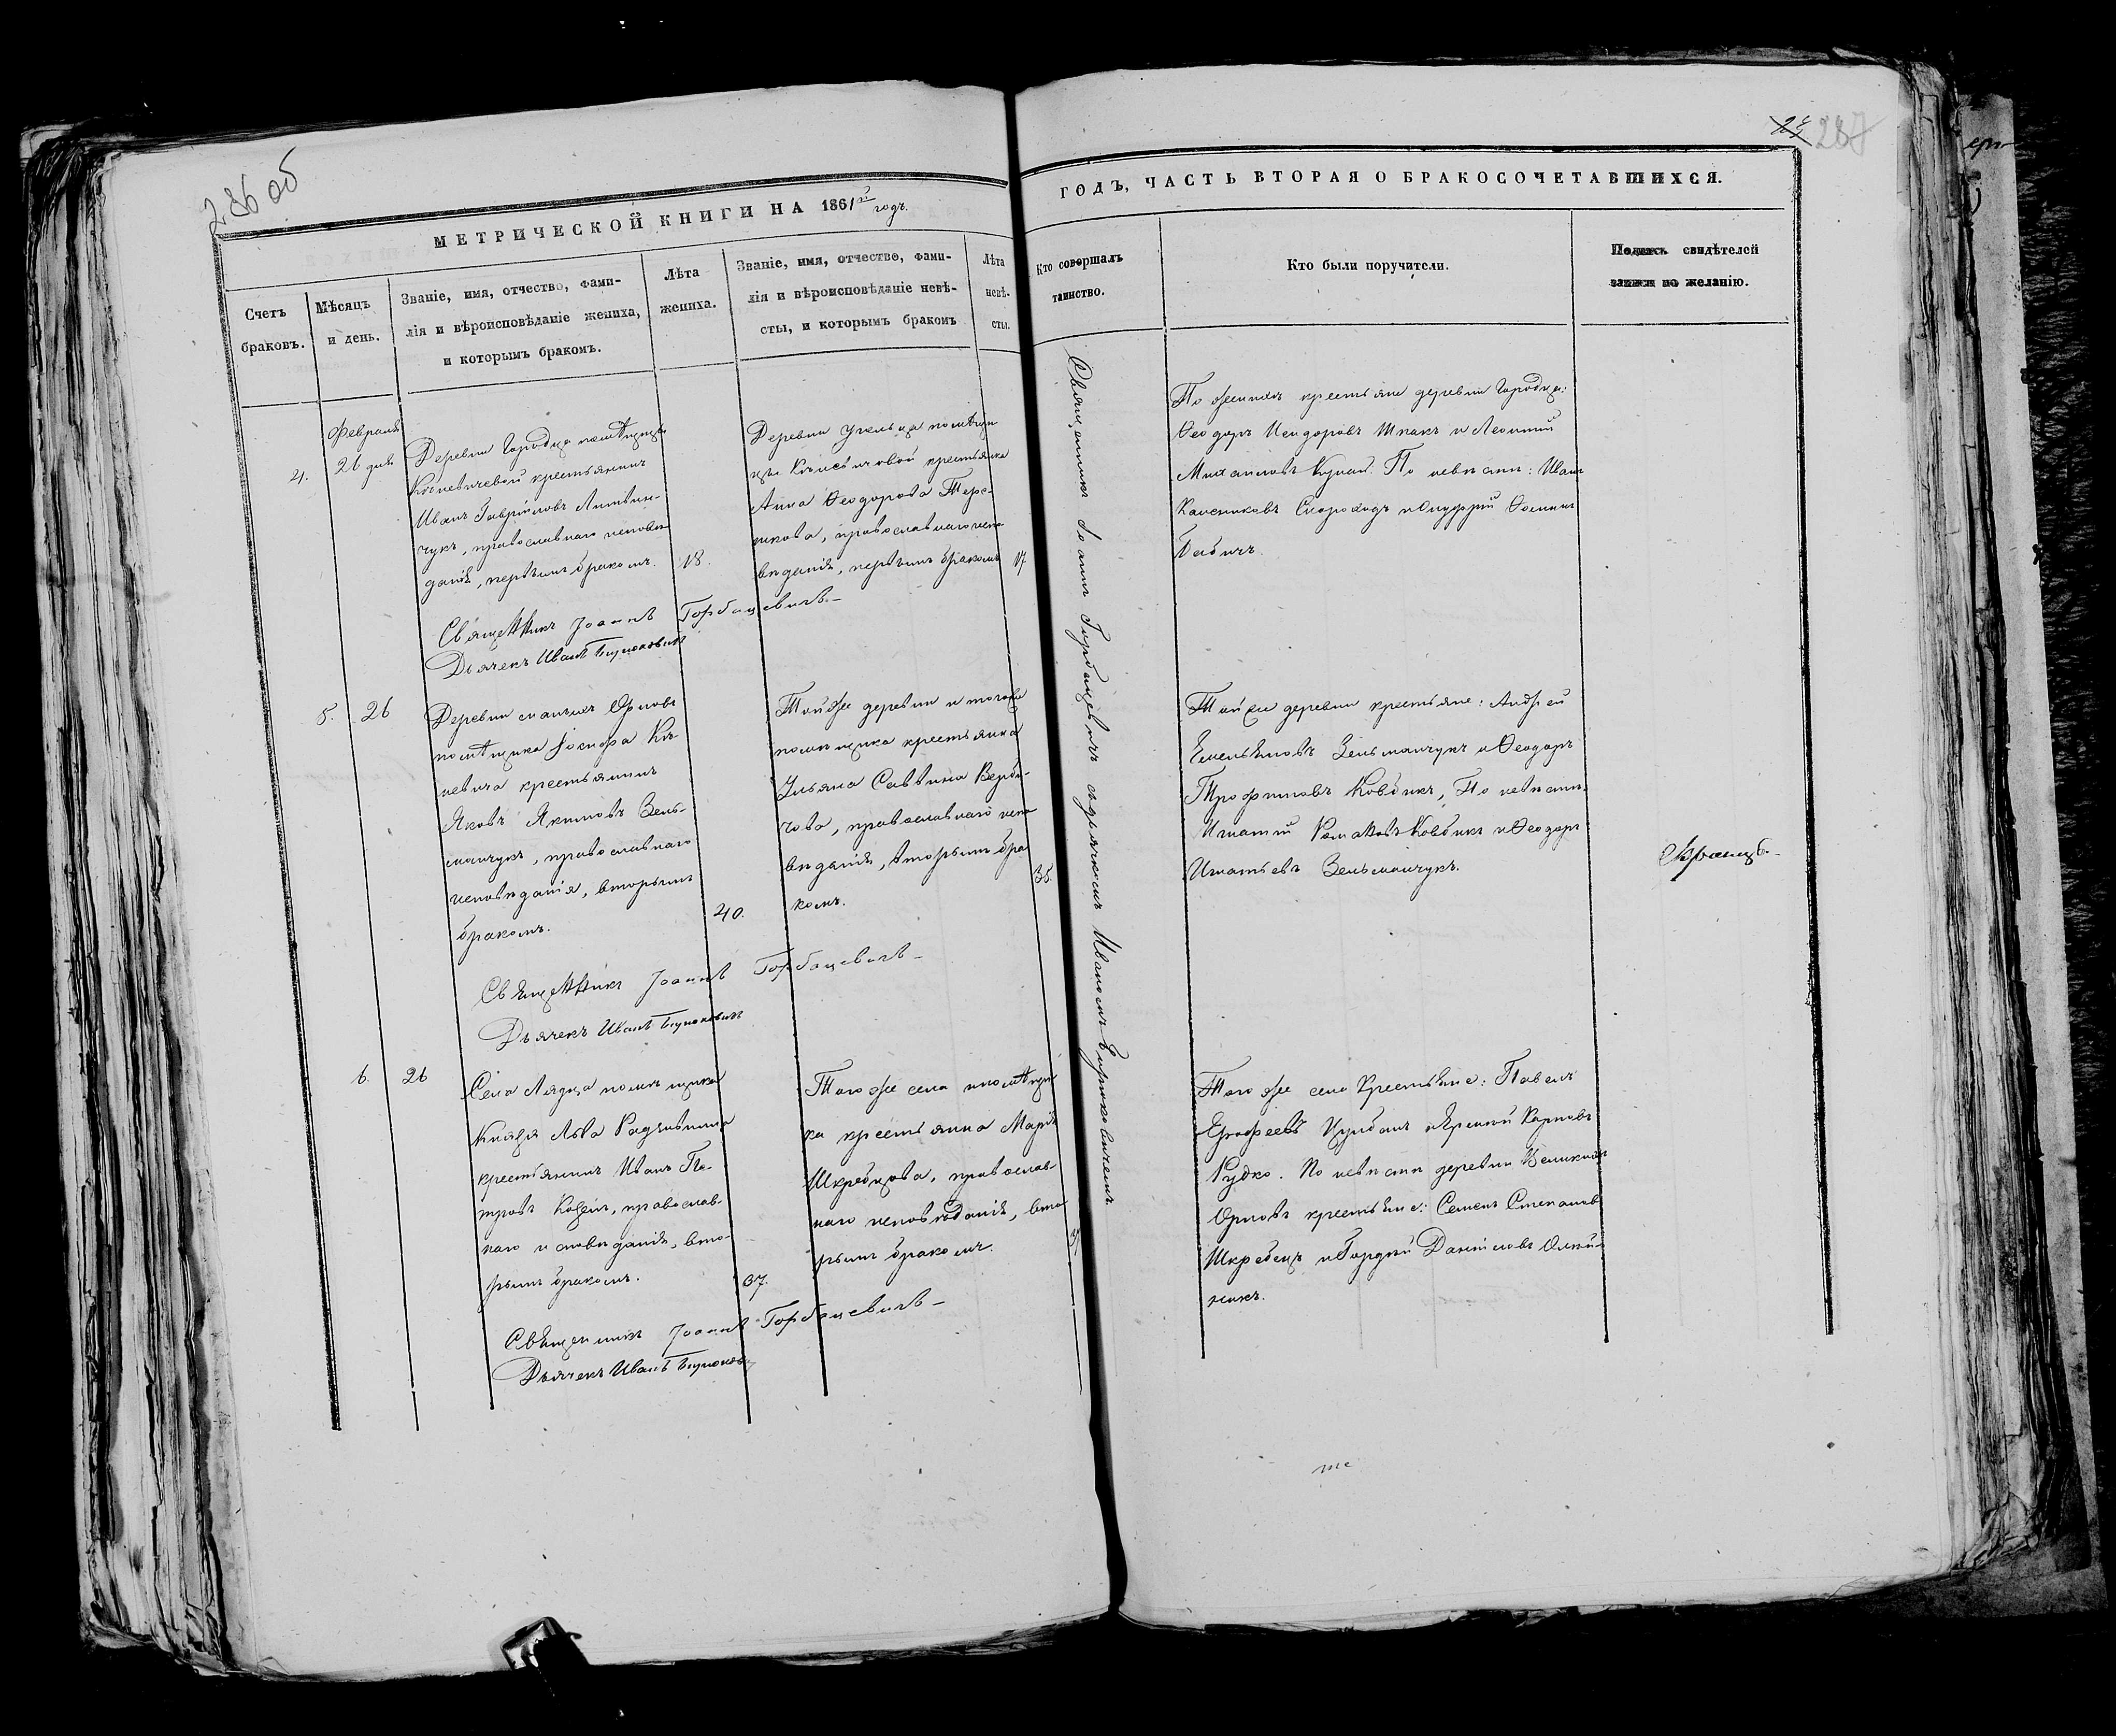 236 об
287
МЕТРИЧЕСКОЙ КНИГИ НА 1861 годъ.
Счетъ
браковъ.
Мѣсяцъ
и день.
Званіе, имя, отчество, фами-
лія и вѣроисповѣданіе жениха,
и которымъ бракомъ.
Лѣта
жениха.
Званіе, имя, отчество, фами-
лія и вѣроисповѣданіе невѣ-
сты, и которымъ бракомъ
Лѣта
невѣ-
сты.
4.
Февраля
26 дня
Деревни Городца помѣщицы
крестьянинъ
Иванъ Гавріиловъ Литвин-
чукъ, православнаго исповѣ
данія, первымъ бракомъ.
18.
Деревни помѣщи
цы крестьянка
Анна Ѳеодорова Тере-
шкова, православнаго испо
вѣданія, первымъ бракомъ
17
Священникъ Іоаннъ Горбацевичъ
Дьячекъ Иванъ
5.
26
Деревни Орловъ
помѣщика Іосифа Кѣ-
невича крестьянинъ
Яковъ Якимовъ Зель-
манчукъ, православнаго
исповѣданія, вторымъ
бракомъ.
40.
Той же деревни и тогоже
помѣщика крестьянка
Ульяна Саввина Верби-
чова, православнаго испо
вѣданія, вторымъ бра
комъ.
35.
Священникъ Іоаннъ Горбацевичъ
Дьячекъ Иванъ
6.
26
Села Лядца помѣщика
Князя Льва Радзивила
крестьянинъ Иванъ Пе-
тровъ православ-
наго исповѣданія, вто-
рымъ бракомъ.
37.
Того же села и помѣщи
ка крестьянка Марія
Шкребцова, православ-
наго исповѣданія, вто
рымъ бракомъ.
Священникъ Іоаннъ Горбацевичъ
Дьячекъ Иванъ
ГОДЪ, ЧАСТЬ ВТОРАЯ О БРАКОСОЧЕТАВШИХСЯ.
Кто совершалъ
таинство.
Кто были поручители.
Подпись свидѣтелей
записи по желанію.
Священникъ Іоаннъ Горбацевичъ съ дьячкомъ Иваномъ
По женихѣ крестьяне деревни Городца:
Ѳеодоръ Исидоровъ Шпакъ и Леонтій
Михаиловъ По невѣстѣ: Иванъ
Скороходъ и Онуфрій Ѳоминъ
Бабичъ.
Той же деревни крестьяне: Андрей
Емельяновъ Зельманчукъ и Ѳеодоръ
Трофимовъ Ковбикъ, По невѣстѣ
Игнатій Ковбикъ и Ѳеодоръ
Игнатьевъ Зельманчукъ.
Того же села Крестьяне: Павелъ
Ерофеевъ Цулбанъ и Карповъ
Рудко. По невѣстѣ деревни Великихъ
Орловъ крестьяне: Семенъ Степановъ
Шкребецъ и Гордѣй Даниловъ Олей-
никъ.